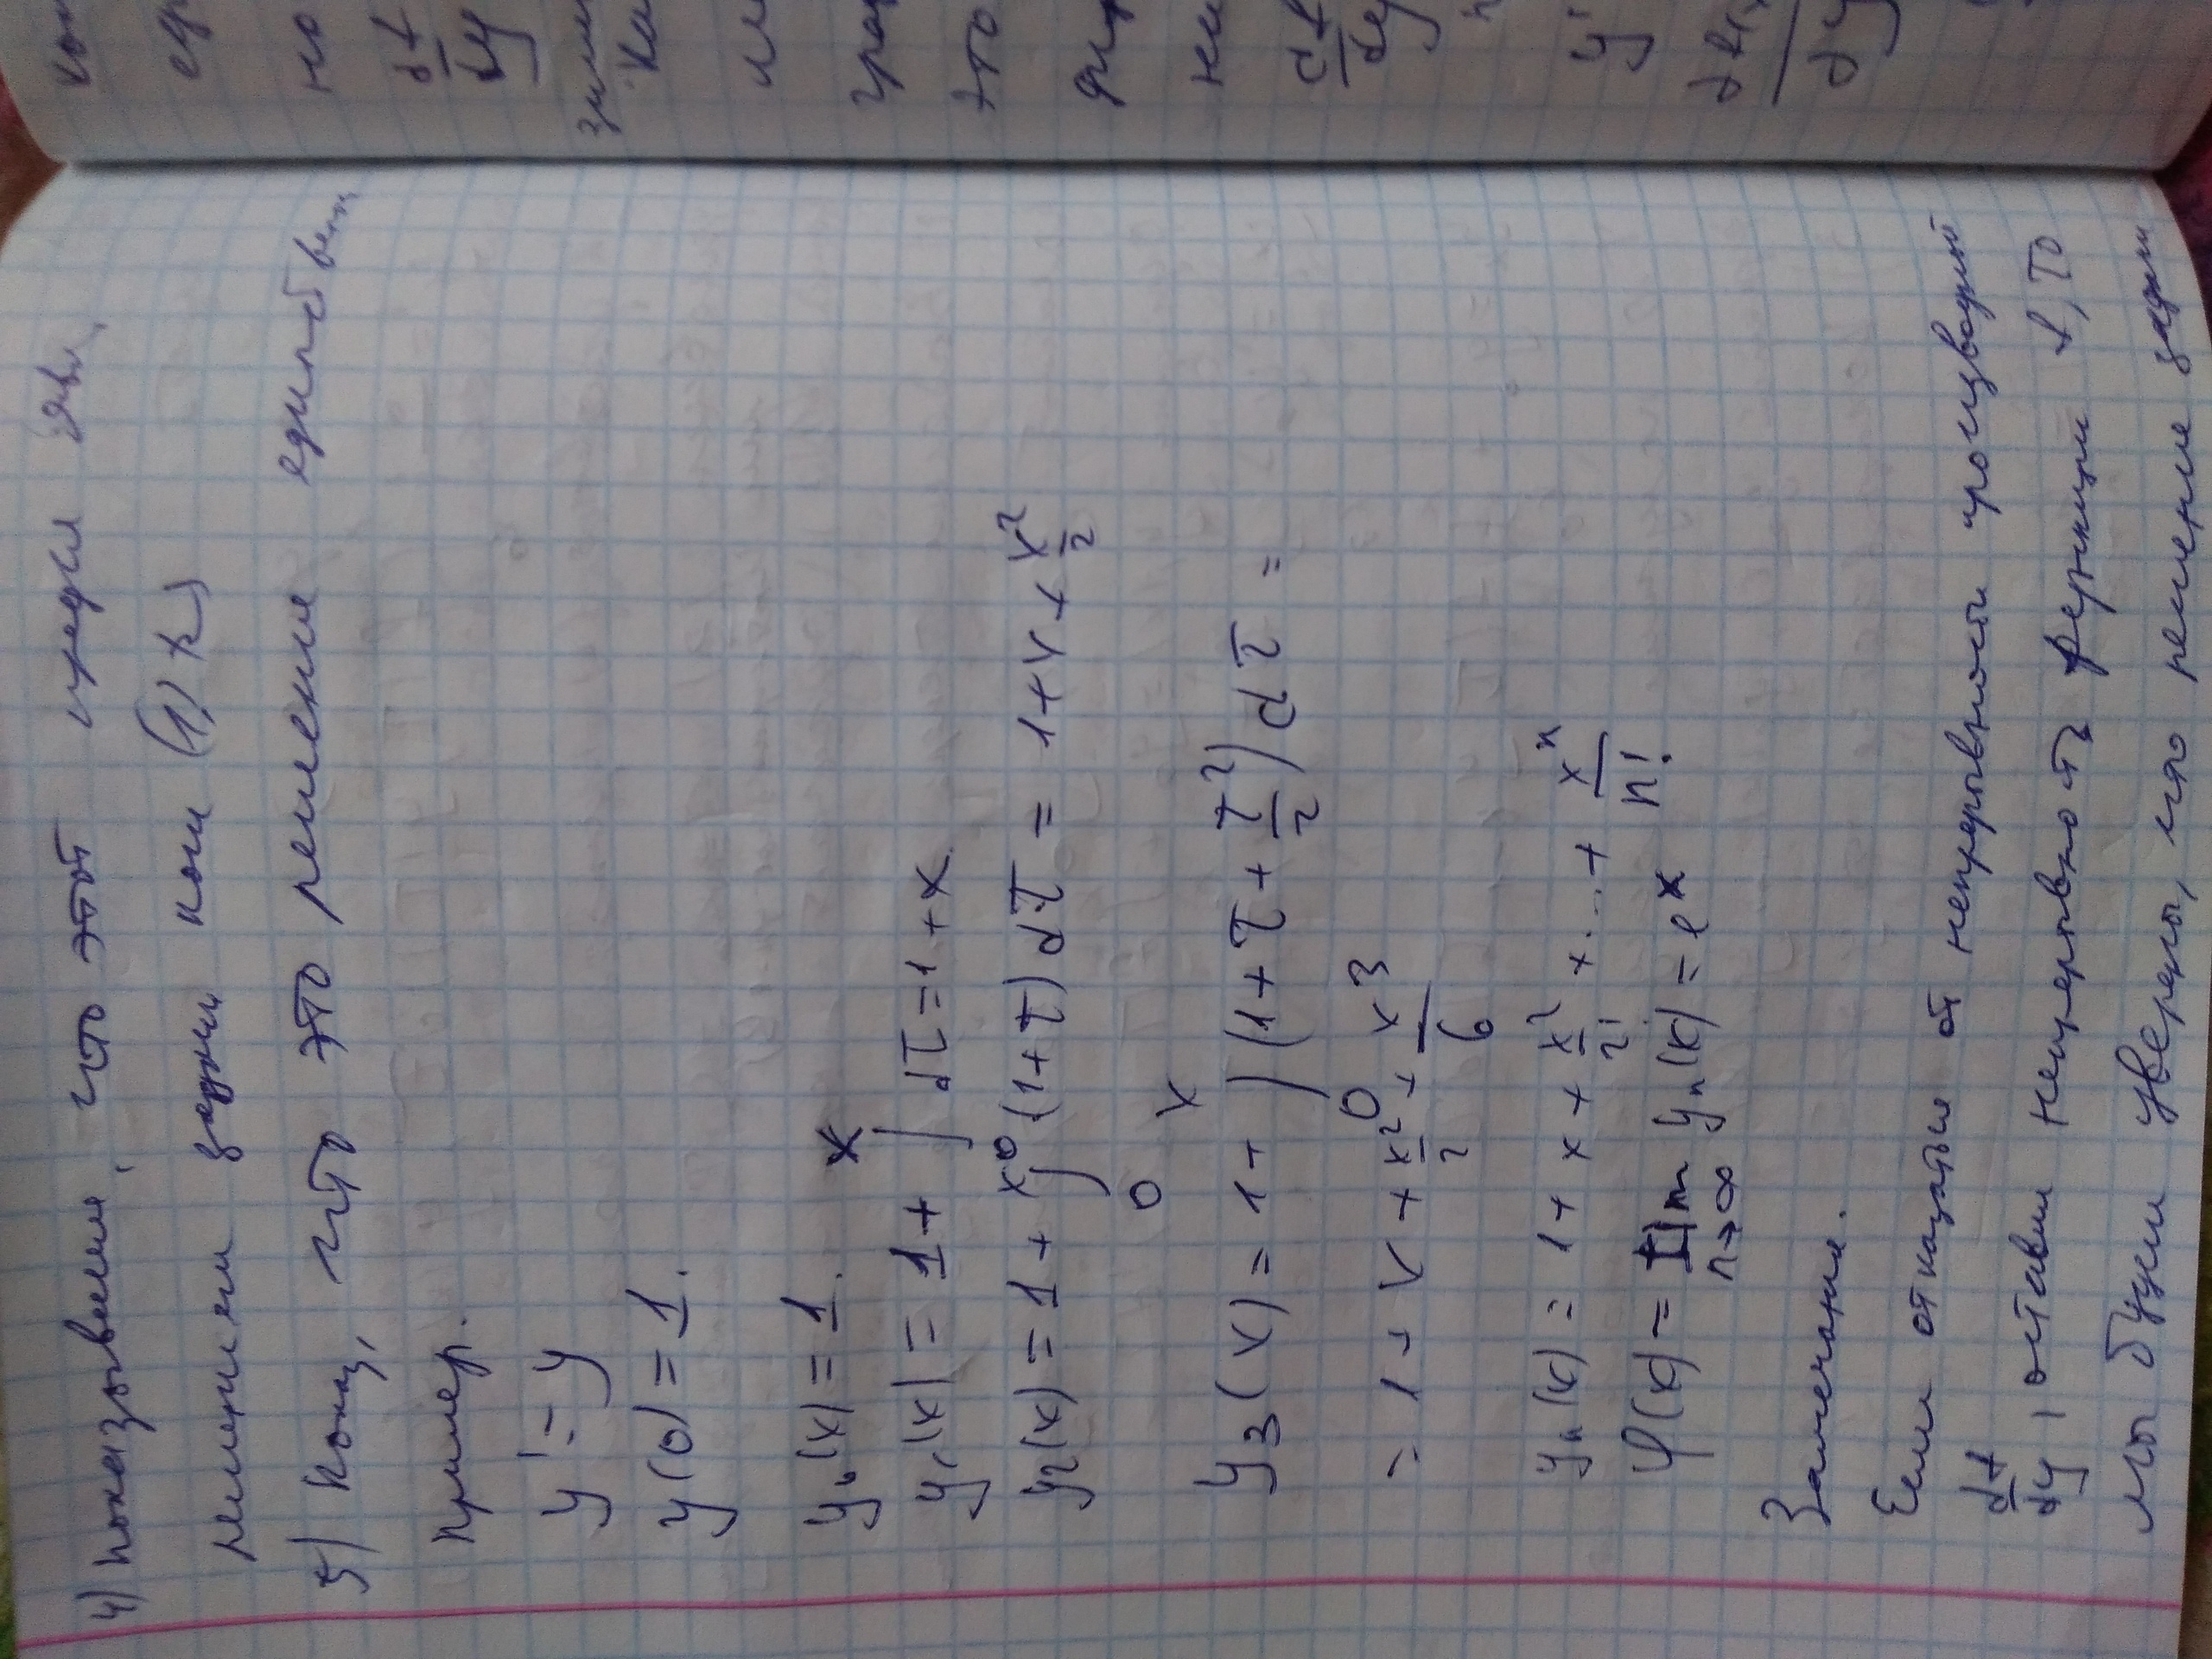 4) показываем, что этот предел явл.
решением задачи Коши (1), (2)
5) Показ, что это решение единствен
Пример.
y' = y
y(0) = 1.
y₀(x) = 1.
y₁(x) = 1 + ∫₀ˣ dτ = 1 + x.
y₂(x) = 1 + ∫₀ˣ (1+τ) dτ = 1 + x + x²/2
y₃(x) = 1 + ∫₀ˣ (1 + τ + τ²/2) dτ =
= 1 + x + x²/2 + x³/6
yₙ(x) = 1 + x + x²/2! + ... + xⁿ/n!
φ(x) = lim n→∞ yₙ(x) = eˣ
Замечание.
Если отказаться от непрерывности производной
∂f/∂y, оставив непрерывность функции f, то
мы будем уверены, что решение задачи
но
∂f/∂y
это
∂f/∂y
y'